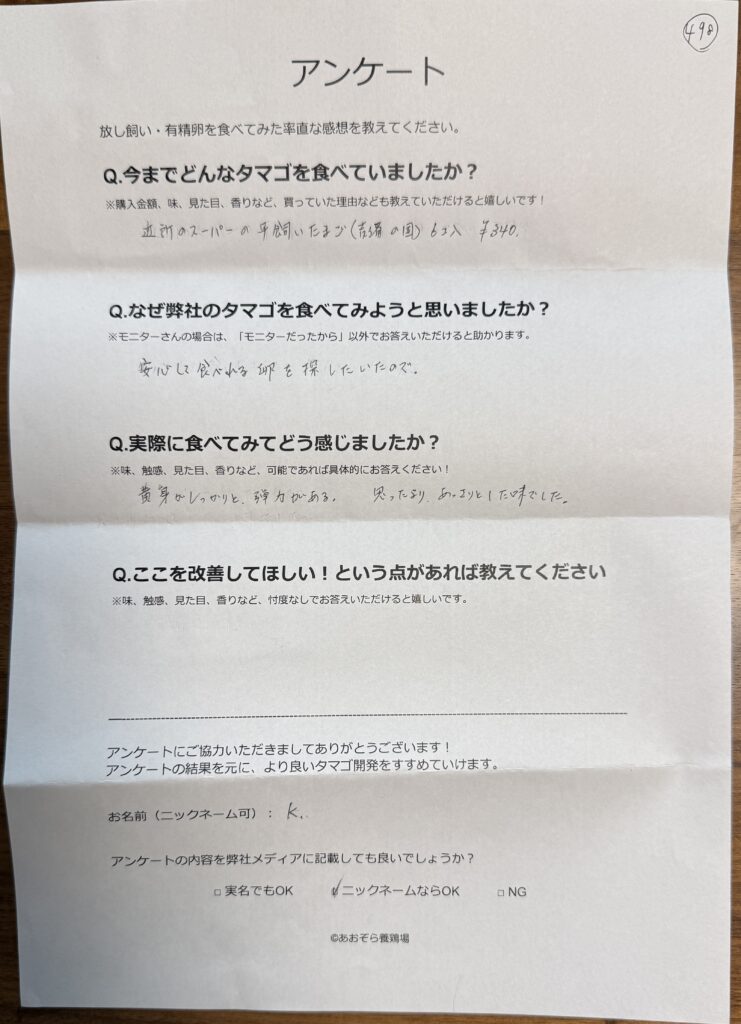 498
アンケート
放し飼い・有精卵を食べてみた率直な感想を教えてください。
Q.今までどんなタマゴを食べていましたか？
※購入金額、味、見た目、香りなど、買っていた理由なども教えていただけると嬉しいです！
近所のスーパーの平飼いたまご(吉備の国) 6コ入 ¥340.
Q.なぜ弊社のタマゴを食べてみようと思いましたか？
※モニターさんの場合は、「モニターだったから」以外でお答えいただけると助かります。
安心して食べれる卵を探していたので。
Q.実際に食べてみてどう感じましたか？
※味、触感、見た目、香りなど、可能であれば具体的にお答えください！
黄身がしっかりと、弾力がある。 思ったより、あっさりとした味でした。
Q.ここを改善してほしい！という点があれば教えてください
※味、触感、見た目、香りなど、忖度なしでお答えいただけると嬉しいです。
アンケートにご協力いただきましてありがとうございます！
アンケートの結果を元に、より良いタマゴ開発をすすめていけます。
お名前（ニックネーム可）： K.
アンケートの内容を弊社メディアに記載しても良いでしょうか？
□ 実名でもOK ☑ニックネームならOK □ NG
©あおぞら養鶏場